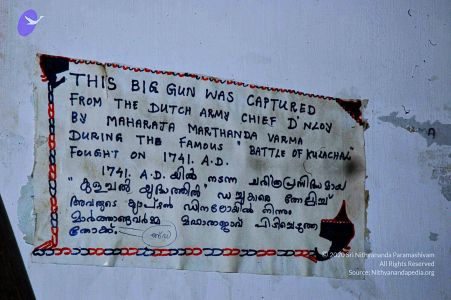 THIS BIG GUN WAS CAPTURED
FROM THE DUTCH ARMY CHIEF D'NLOY
BY MAHARAJA MARTHANDA VARMA
DURING THE FAMOUS "BATTLE OF KULACHAL"
FOUGHT ON 1741. A.D.
1741. A.D. യിൽ നടന്ന ചരിത്രപ്രസിദ്ധമായ
"കുളച്ചൽ യുദ്ധത്തിൽ" ഡച്ചുകാരെ തോല്പിച്ച്
അവരുടെ ഡിനലോയിൽ നിന്നും
മാർത്താണ്ഡവർമ്മ മഹാരാജാവ് പിടിച്ചെടുത്ത
തോക്ക്.
© 2020 Sri Nithyananda Paramashivam
All Rights Reserved
Source: Nithyanandapedia.org